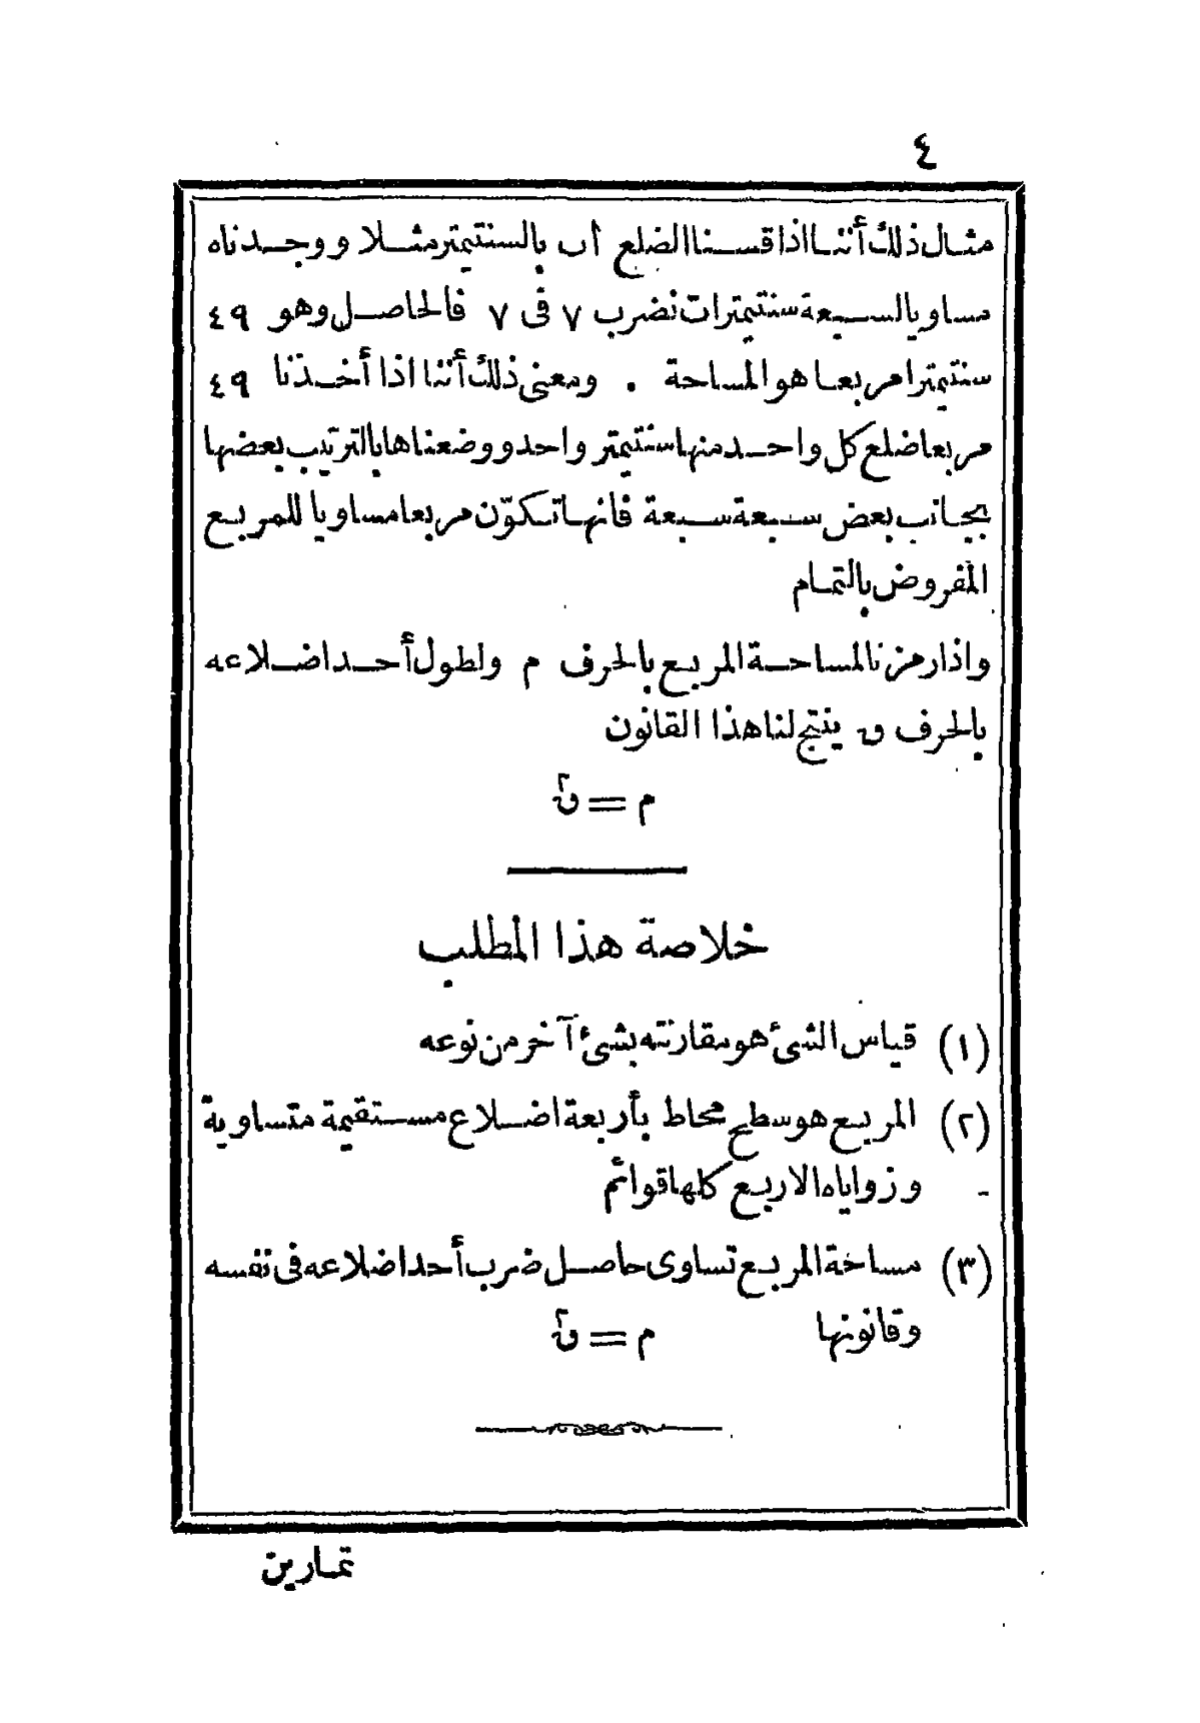 ٤
مثال ذلك أننا اذا قسنا الضلع أب بالسنتيمتر مثلا ووجدناه
مساويا لسبعة سنتيمترات نضرب ٧ فى ٧ فالحاصل وهو ٤٩
سنتيمترا مربعا هو المساحة . ومعنى ذلك أننا اذا أخذنا ٤٩
مربعا ضلع كل واحد منها سنتيمتر واحد ووضعناها بالترتيب بعضها
بجانب بعض سبعة سبعة فانها تكوّن مربعا مساويا للمربع
المفروض بالتمام
واذا رمزنا لمساحة المربع بالحرف م ولطول أحد اضلاعه
بالحرف ں ينتج لنا هذا القانون
م = ں٢
خلاصة هذا المطلب
(١) قياس الشئ هو مقارنته بشئ آخر من نوعه
(٢) المربع هو سطح محاط بأربعة اضلاع مستقيمة متساوية
وزواياه الاربع كلها قوائم
(٣) مساحة المربع تساوى حاصل ضرب أحد اضلاعه فى نفسه
وقانونها م = ں٢
تمارين